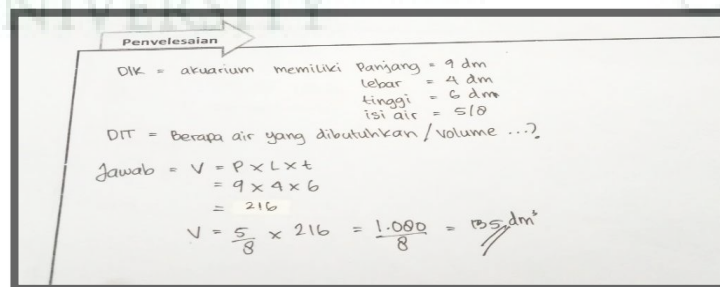 UNIVERSITY
Penyelesaian
DIK = akuarium memiliki Panjang = 9 dm
lebar = 4 dm
tinggi = 6 dm
isi air = 5/8
DIT = Berapa air yang dibutuhkan / volume ...?
Jawab = V = P x L x t
= 9 x 4 x 6
= 216
V = 5/8 x 216 = 1.080/8 = 135 dm³